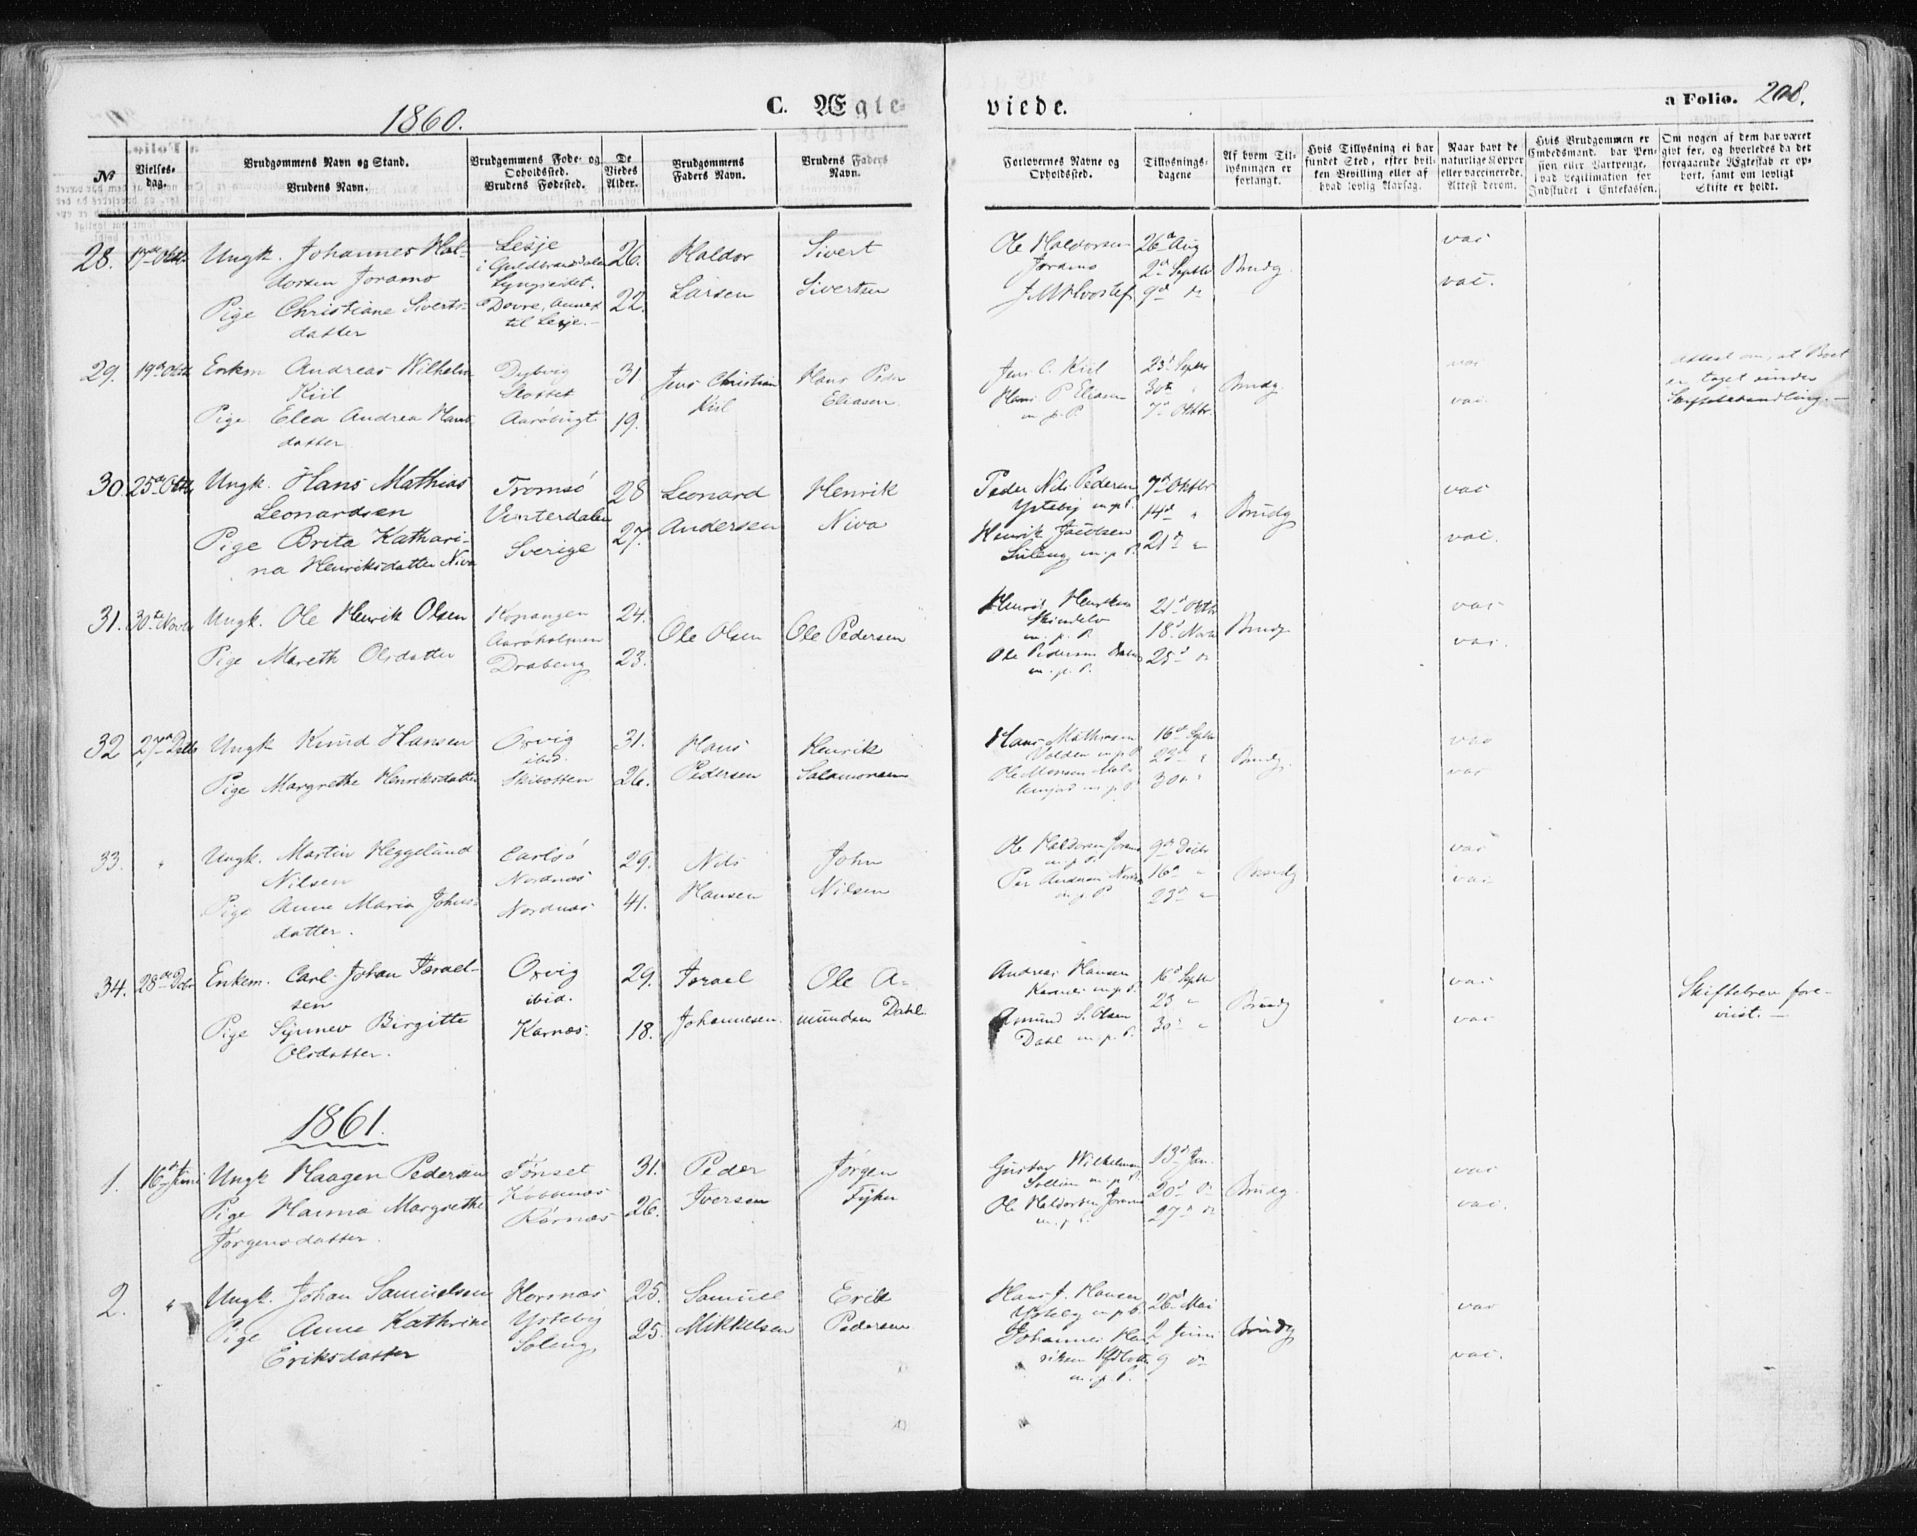 1860.
C. Ægteviede.
a Folio. 208.
No
Vielsesdag.
Brudgommens Navn og Stand.
Brudens Navn.
Brudgommens Føde- og Opholdssted.
Brudens Fødested.
De Viedes Alder.
Brudgommens Faders Navn.
Brudens Faders Navn.
Forlovernes Navne og Opholdssted.
Tillysningsdagene
Af hvem Tillysningen er forlangt.
Hvis Tillysning ei har fundet Sted, efter hvilken Bevilling eller af hvad lovlig Aarsag.
Naar havt de naturlige Kopper eller vaccinerede. Attest derom.
Hvis Brudgommen er Embedsmand, har Pension eller Vartpenge, hvad Legitimation for Indskudet i Enkekassen.
Om nogen af dem har været gift før, og hvorledes da det foregaaende Ægteskab er ophørt, samt om lovligt Skifte er holdt.
28. 17de Oktb. Ungk. Johannes Haldorsen Joramo
Lesje i Guldbrandsdalen Lyngseidet. 26. Haldor Larsen
Pige Christiane Sivertsdatter
Dovre, Annex til Lesje. 22. Sivert Sivertsen
Ole Haldorsen Joramo 26de Aug
2d Septbr Brudg.
9d do
vac
vac.
29. 19de Oktb Enkem Andreas Wilhelm Kiil
Dybvig Slottet 31 Jens Christian Kiil
Pige Elea Andrea Hansdatter
Aarøbugt 19. Hans Peder Eliasen
Jens C. Kiil 23d Septbr
Hans P Eliasen 30te " Brudg.
m. p. P 7d Oktbr.
vac
vac.
Attest om, at Boet
er taget under
Skiftebehandling.
30. 25de Oktb Ungk. Hans Mathias Leonardsen
Tromsø 28 Leonard Andersen
Pige Brita Katharina Henriksdatter Niva
Sverige 27. Henrik Niva
Peder Nils Pedersen 7d Oktbr
Ysteby m.p.P. 14d " Brudg
Henrik Jacobsen 21d "
m.p.P.
vac
vac.
31. 30te Novbr Ungk. Ole Henrik Olsen
Kopangen Aarøholmen 24. Ole Olsen
Pige Mareth Olsdatter
Drabeng 23. Ole Pedersen
21d Oktbr
m. p. P. 18d Novbr Brudg
Ole Pedersen 25d do
m. p. P.
vac
vac.
32 27de Decbr Ungk Knud Hansen
Oxvig ibid. 31. Hans Pedersen
Pige Margrethe Henriksdatter
Skibotten 26. Henrik Salamonsen
Hans Mathisen 16d Septbr
m.p.P. 23d " Brudg.
Ole Monsen 30te "
m.p.P
vac
vac
33. " Ungk. Martin Heggelund Nilsen
Carlsø Nordnæs 29. Nils Hansen
Pige Anne Maria Johnsdatter.
Nordnæs 41. John Nilsen
Ole Haldorsen Joramo 9de Decbr
m.p.P. 16d " Brudg
m.p.P 23d "
vac
vac
34. 28de Decbr Enkem. Carl Johan Israelsen
Oxvig ibid. 29. Israel Johannesen.
Pige Synnev Birgitte Olsdatter.
Karnæs. 18. Ole Amundsen Dahl
Andreas Hansen 16d Septbr
Karnæs m.p.P. 23 " Brudg
Amund S. Olsen 30d "
Dahl m.p.P.
vac
vac
Skiftebrev forevist.
1861.
1. 16d Juni Ungk Haagen Pedersen
Tønset 31. Peder Iversen
Pige Hanna Margrethe Jørgensdatter.
Karnæs 26. Jørgen
13d Jan.
m.p.P. 20d do Brudg.
Ole Haldorsen Joramo 27d do
m.p.P.
vac
vac.
2. " Ungk. Johan Samuelsen
Horsnæs Ysteby 25. Samuel Mikkelsen
Pige Anne Kathrine Eriksdatter
Soleng 25. Erik Pedersen
Hans J. Hansen 26d Mai
Ysteby m.p.P. 2 Juni Brudg
Johannes Henriksen 9 do
m. p. P.
vac
vac.